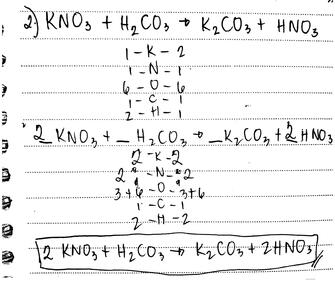 2) KNO₃ + H₂CO₃ → K₂CO₃ + HNO₃
1 - K - 2
1 - N - 1
6 - O - 6
1 - C - 1
2 - H - 1
2 KNO₃ + _ H₂CO₃ → _ K₂CO₃ + 2 HNO₃
2 - K - 2
2 - N - 2
3+6 - O - 3+6
1 - C - 1
2 - H - 2
2 KNO₃ + H₂CO₃ → K₂CO₃ + 2HNO₃